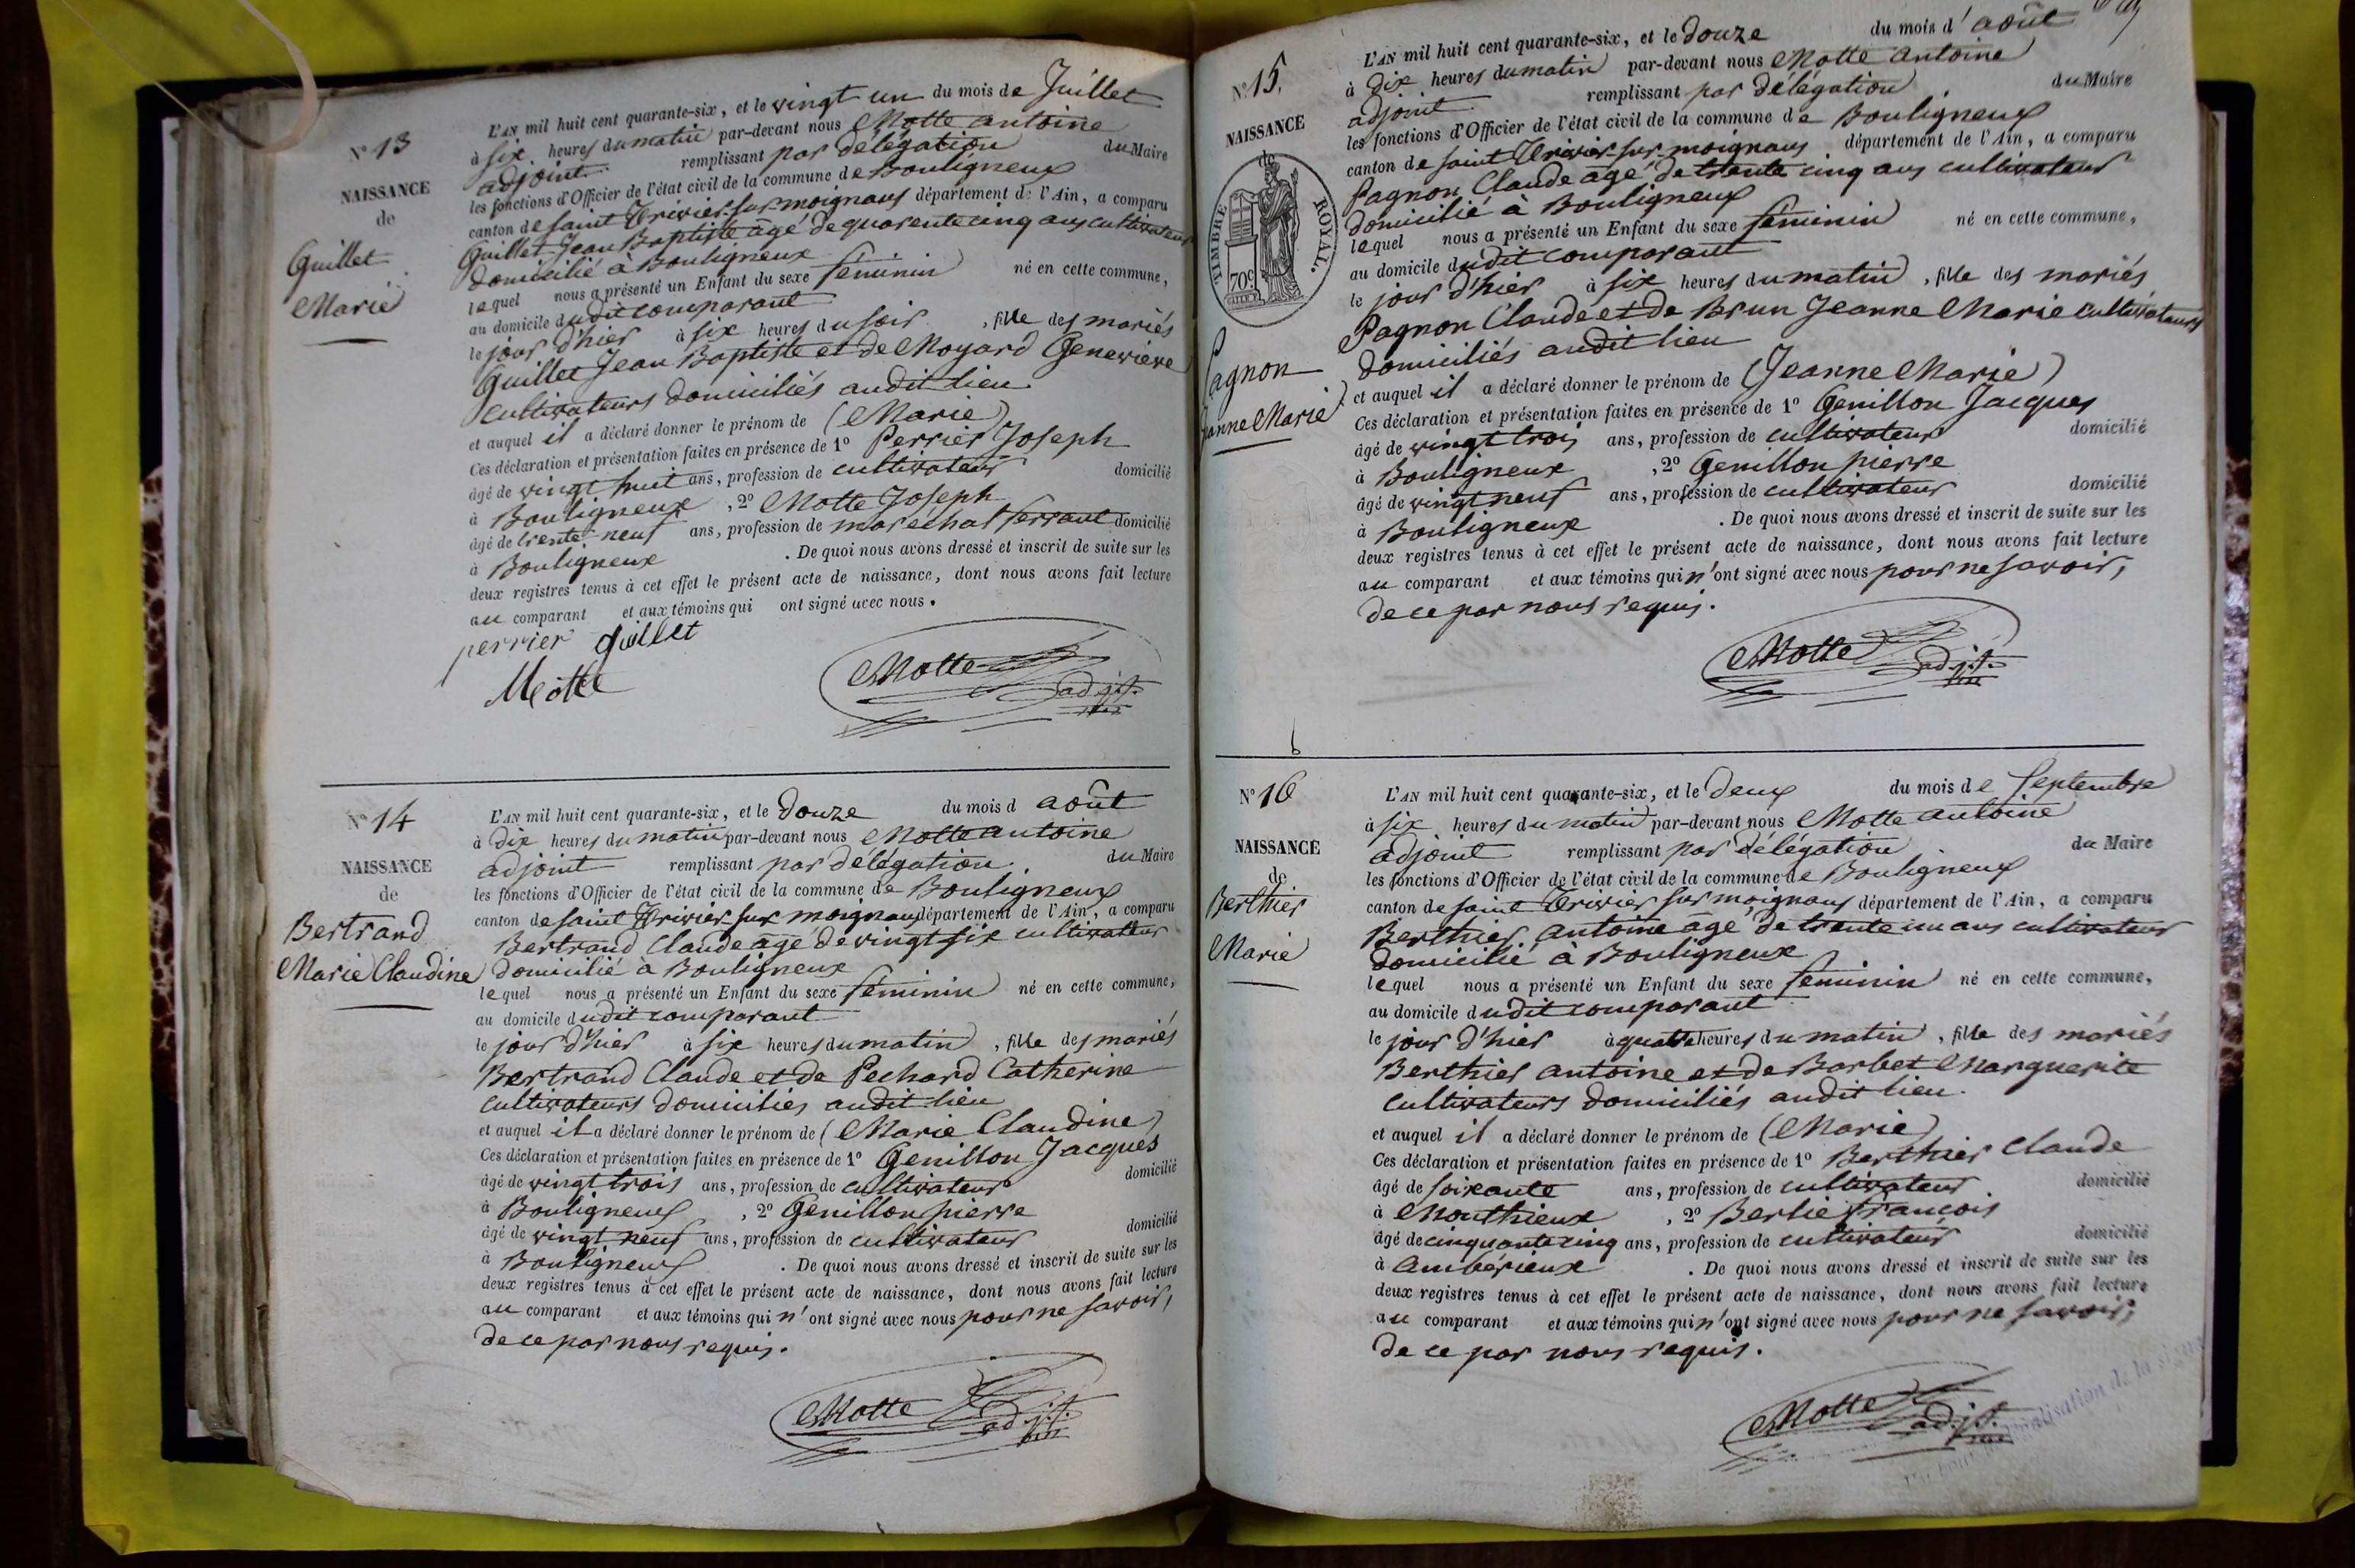 N° 13
NAISSANCE
de
Guillet
Marie
L'AN mil huit cent quarante-six, et le vingt un du mois de Juillet
à six heures du matin par-devant nous Motte antoine
adjoint remplissant par délégation du Maire
les fonctions d'Officier de l'état civil de la commune de Bouligneux
canton de saint Trivier-sur-moignans département de l'Ain, a comparu
Guillet Jean Baptiste âgé de quarente cinq ans cultivateur
domicilié à Bouligneux
lequel nous a présenté un Enfant du sexe féminin né en cette commune,
au domicile dudit comparant
le jour d'hier à six heures du soir, fille des mariés
Guillet Jean Baptiste et de Moyard Geneviève
cultivateurs domiciliés audit lieu.
et auquel il a déclaré donner le prénom de (Marie)
Ces déclaration et présentation faites en présence de 1° Perrier Joseph
âgé de vingt huit ans, profession de cultivateur domicilié
à Bouligneux, 2° Motte Joseph
âgé de trente neuf ans, profession de maréchal ferrant domicilié
à Bouligneux. De quoi nous avons dressé et inscrit de suite sur les
deux registres tenus à cet effet le présent acte de naissance, dont nous avons fait lecture
au comparant et aux témoins qui ont signé avec nous.
perrier guillet
Motte
Motte
adjt.
N° 14
NAISSANCE
de
Bertrand
Marie Claudine
L'AN mil huit cent quarante-six, et le Douze du mois d août
à dix heures du matin par-devant nous Motte antoine
adjoint remplissant par délégation du Maire
les fonctions d'Officier de l'état civil de la commune de Bouligneux
canton de saint Trivier-sur moignans département de l'Ain, a comparu
Bertrand Claude âgé de vingt six cultivateur
domicilié à Bouligneux
lequel nous a présenté un Enfant du sexe féminin né en cette commune,
au domicile dudit comparant
le jour d'hier à six heures du matin, fille des mariés
Bertrand Claude et de Pechard Catherine
cultivateurs domiciliés audit lieu
et auquel il a déclaré donner le prénom de (Marie Claudine)
Ces déclaration et présentation faites en présence de 1° Genillon Jacques
âgé de vingt trois ans, profession de cultivateur domicilié
à Bouligneux, 2° Genillon pierre
âgé de vingt neuf ans, profession de cultivateur domicilié
à Bouligneux. De quoi nous avons dressé et inscrit de suite sur les
deux registres tenus à cet effet le présent acte de naissance, dont nous avons fait lecture
au comparant et aux témoins qui n'ont signé avec nous pour ne savoir,
de ce par nous requis.
Motte
adjt.
N° 15.
NAISSANCE
de
TIMBRE ROYAL.
70c.
Pagnon
Jeanne Marie
L'AN mil huit cent quarante-six, et le Douze du mois d'août
à dix heures du matin par-devant nous Motte antoine
adjoint remplissant par délégation du Maire
les fonctions d'Officier de l'état civil de la commune de Bouligneux
canton de saint Trivier-sur-moignans département de l'Ain, a comparu
Pagnon Claude âgé de trente cinq ans cultivateur
domicilié à Bouligneux
lequel nous a présenté un Enfant du sexe féminin né en cette commune,
au domicile dudit comparant
le jour d'hier à six heures du matin, fille des mariés
Pagnon Claude et de Brun Jeanne Marie cultivateurs
domiciliés audit lieu
et auquel il a déclaré donner le prénom de (Jeanne Marie)
Ces déclaration et présentation faites en présence de 1° Genillon Jacques
âgé de vingt trois ans, profession de cultivateur domicilié
à Bouligneux, 2° Genillon pierre
âgé de vingt neuf ans, profession de cultivateur domicilié
à Bouligneux. De quoi nous avons dressé et inscrit de suite sur les
deux registres tenus à cet effet le présent acte de naissance, dont nous avons fait lecture
au comparant et aux témoins qui n'ont signé avec nous pour ne savoir,
de ce par nous requis.
Motte
adjt.
N° 16
NAISSANCE
de
Berthier
Marie
L'AN mil huit cent quarante-six, et le deux du mois de Septembre
à six heures du matin par-devant nous Motte antoine
adjoint remplissant par délégation du Maire
les fonctions d'Officier de l'état civil de la commune de Bouligneux
canton de saint Trivier sur moignans département de l'Ain, a comparu
Berthier antoine âgé de trente un ans cultivateur
domicilié à Bouligneux
lequel nous a présenté un Enfant du sexe féminin né en cette commune,
au domicile dudit comparant
le jour d'hier à quatre heures du matin, fille des mariés
Berthier antoine et de Barbet Marguerite
cultivateurs domiciliés audit lieu.
et auquel il a déclaré donner le prénom de (Marie)
Ces déclaration et présentation faites en présence de 1° Berthier Claude
âgé de soixante ans, profession de cultivateur domicilié
à Monthieux, 2° Berlie françois
âgé de cinquante cinq ans, profession de cultivateur domicilié
à Ambérieux. De quoi nous avons dressé et inscrit de suite sur les
deux registres tenus à cet effet le présent acte de naissance, dont nous avons fait lecture
au comparant et aux témoins qui n'ont signé avec nous pour ne savoir,
de ce par nous requis.
Motte
adjt.